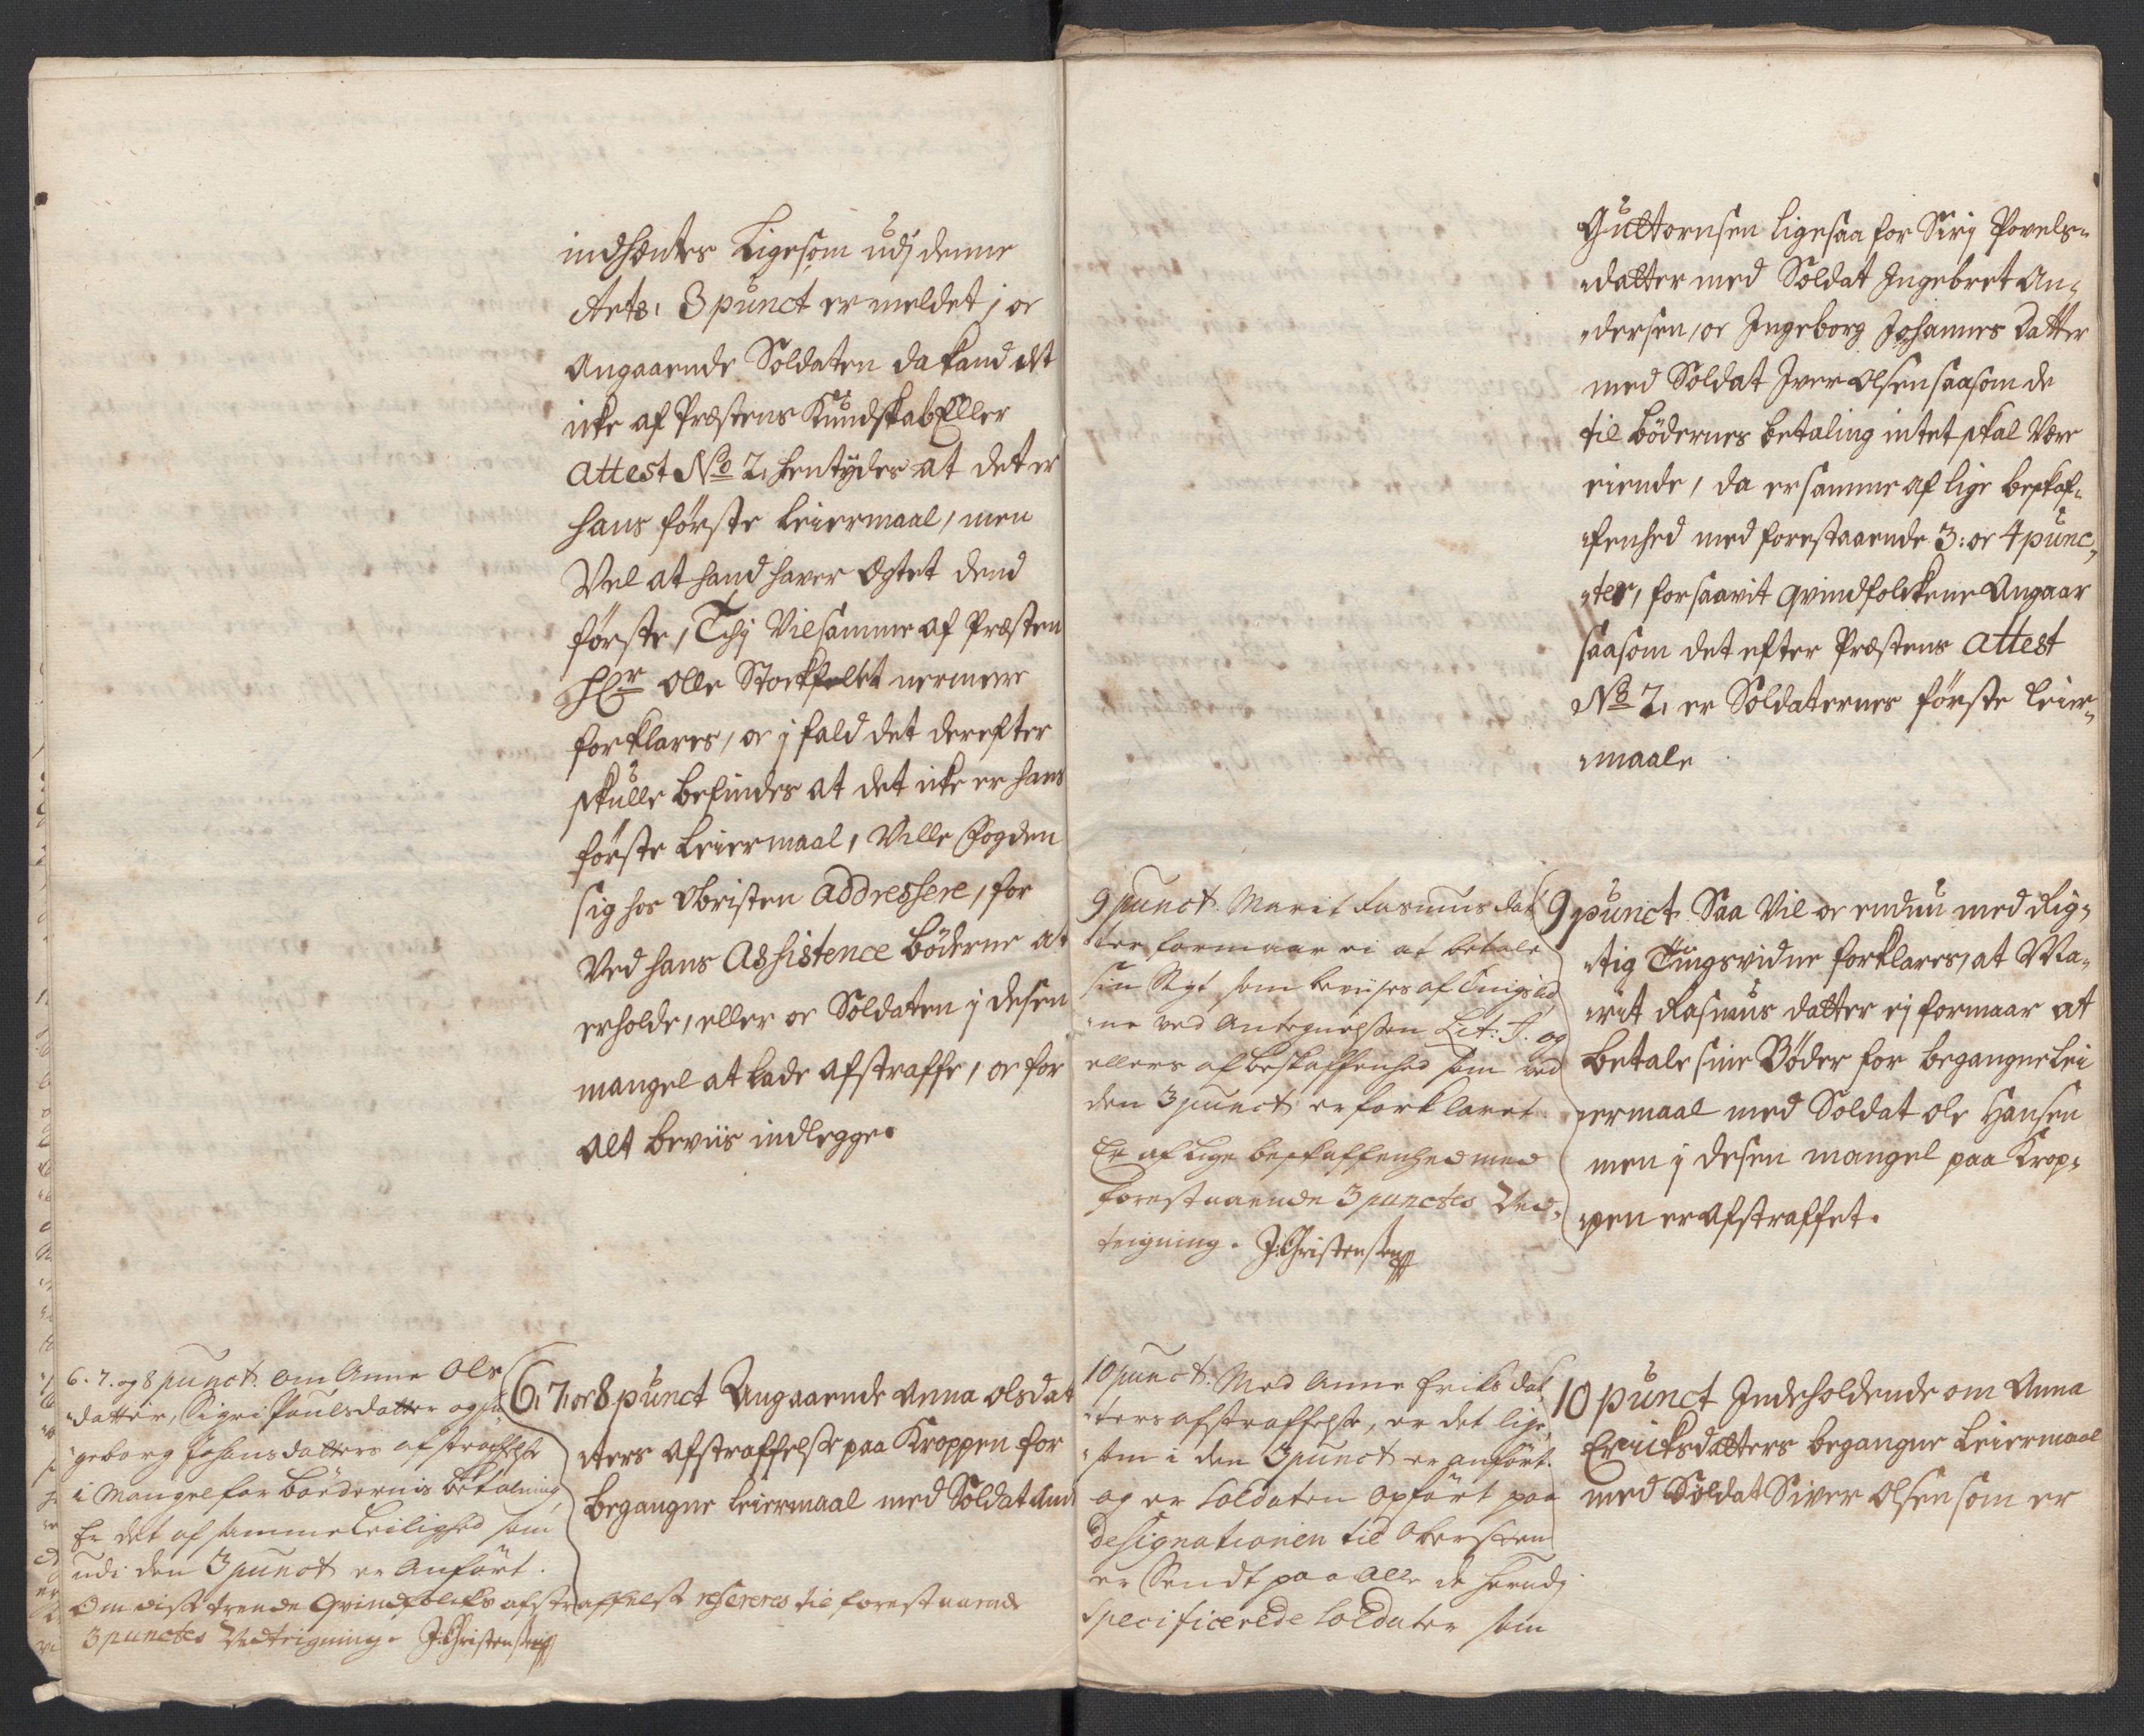 indhentes Ligesom udj denne
Arts: 3 punct er meldet; oc
Angaaende Soldaten da kand det
icke af Præstens Kundskab Eller
Attest No 2, hentÿdes at det er
hans første Leiermaal, men
Vel at hand haver Ægtet dend
første, Thj Vil samme af Præsten
Hr Olle Stockfelt nermere
forklares, oc j fald det derefter
skulle befindes at det icke er hans
første Leiermaal, Ville Fogden
sig hos Obristen addressere, for
Ved hans Assistence bøderne at
erholde, eller oc Soldaten j desen
mangel at lade afstraffe, oc for
alt beviis indlegge.
6. 7. og 8 punct. om Anne Ols
datter, Sigri Paulsdatter og In
geborg Johansdatters afstraffelse
i Mangel for bøedernis betalning
Er det af samme Leilighed som
udi den 3 punct er Anført.
Om disse trende Qvindfolckes afstraffelse refereres til forestaaende
3 punctes Vedteigning. J: Christensen
6. 7. oc 8. punct Angaaende Anna olsdat
ters afstraffelse paa Kroppen for
begangne Leiermaal med Soldat Am
Guttormsen ligesaa for Sirj Povels
datter med Soldat Ingebret An
dersen, oc Ingeborg Johannes datter
med Soldat Iver Olsen saasom de
til bødernes betaling intet skal Være
eiende, da er samme af lige beskaf
fenhed med forestaaende 3: oc 4 punc
ter, forsaavit qvindfolckene Angaar
saasom det efter Præstens attest
No 2, er Soldaternes første leier
maale
9 punct. Marit Rasmus dat
ter formaar ei at betale
sin Sigt som beviises af Tingsvid
ne ved Antegnelsen Lit: J. og
ellers af beskaffenhed som ved
den 3 punct er forklaret
Er af lige beskaffenhed med
forestaaende 3 punctes Ved
teigning. J: Christensen
9 punct. Saa Vil oc enduu med Rig
tig Tingsvidne forklares, at Ma
rit Rasmus datter ej formaar at
betale sine Bøder for begangne Lei
ermaal med Soldat ole Hansen
men j desen mangel paa Krop
pen er afstraffet.
10 punct. Med Anne Eriks dat
ters afstraffelse, er det lige
som i den 3 punct er anført.
og er Soldaten opført paa
designationen til Obersten
er Sendt paa alle de
specificerede Soldater som
10 punct Indeholdende om Anna
Ericksdatters begangne Leiermaal
med Soldat Siver Olsen som er